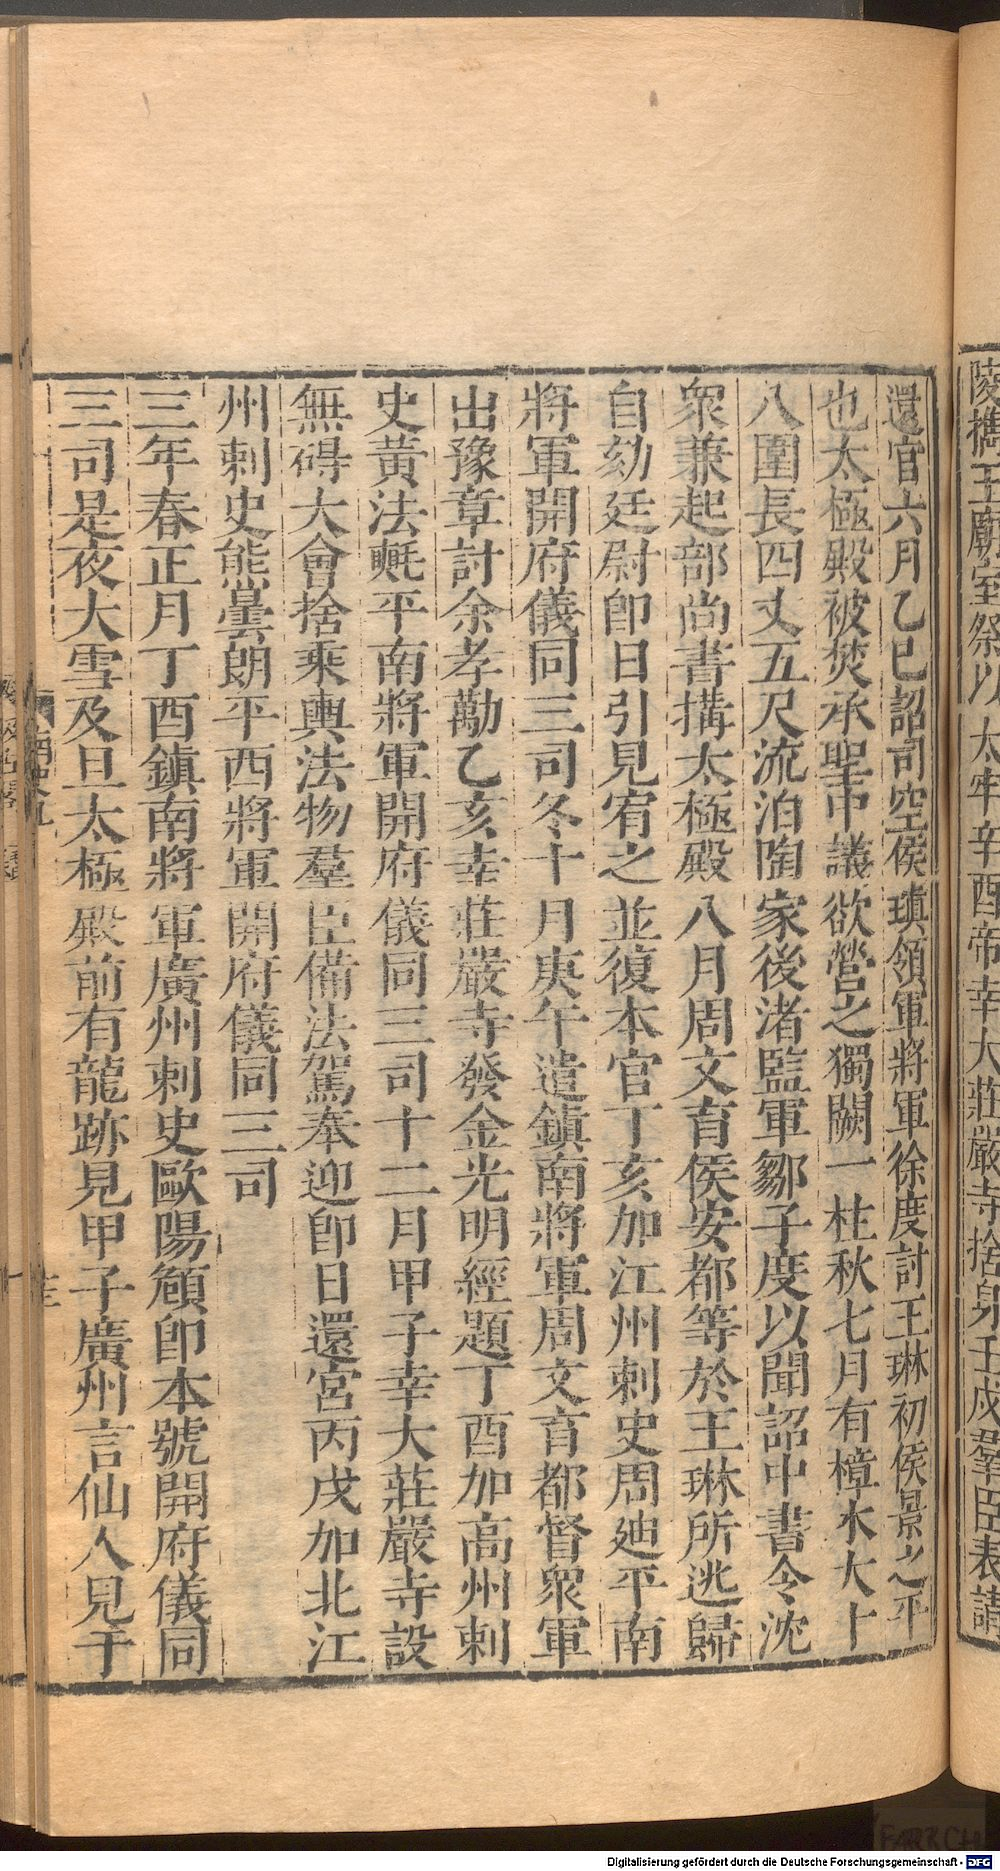 陵攜王廟室祭以太牢辛酉帝幸大莊嚴寺捨身壬戌羣臣表請
還宮六月乙巳詔司空侯瑱領軍將軍徐度討王琳初侯景之平
也太極殿被焚承聖中議欲營之獨闕一柱秋七月有樟木大十
八圍長四丈五尺流泊陶家後渚監軍鄒子度以聞詔中書令沈
衆兼起部尚書搆太極殿八月周文育侯安都等於王琳所逃歸
自劾廷尉卽日引見宥之並復本官丁亥加江州刺史周廸平南
將軍開府儀同三司冬十月庚午遣鎮南將軍周文育都督衆軍
出豫章討余孝勱乙亥幸莊嚴寺發金光明經題丁酉加高州刺
史黃法𣰋平南將軍開府儀同三司十二月甲子幸大莊嚴寺設
無碍大會捨乘輿法物羣臣備法駕奉迎卽日還宮丙戌加北江
州刺史熊曇朗平西將軍開府儀同三司
三年春正月丁酉鎮南將軍廣州刺史歐陽頠卽本號開府儀同
三司是夜大雪及旦太極殿前有龍跡見甲子廣州言仙人見于
南史九
Digitalisierung gefördert durch die Deutsche Forschungsgemeinschaft - DFG